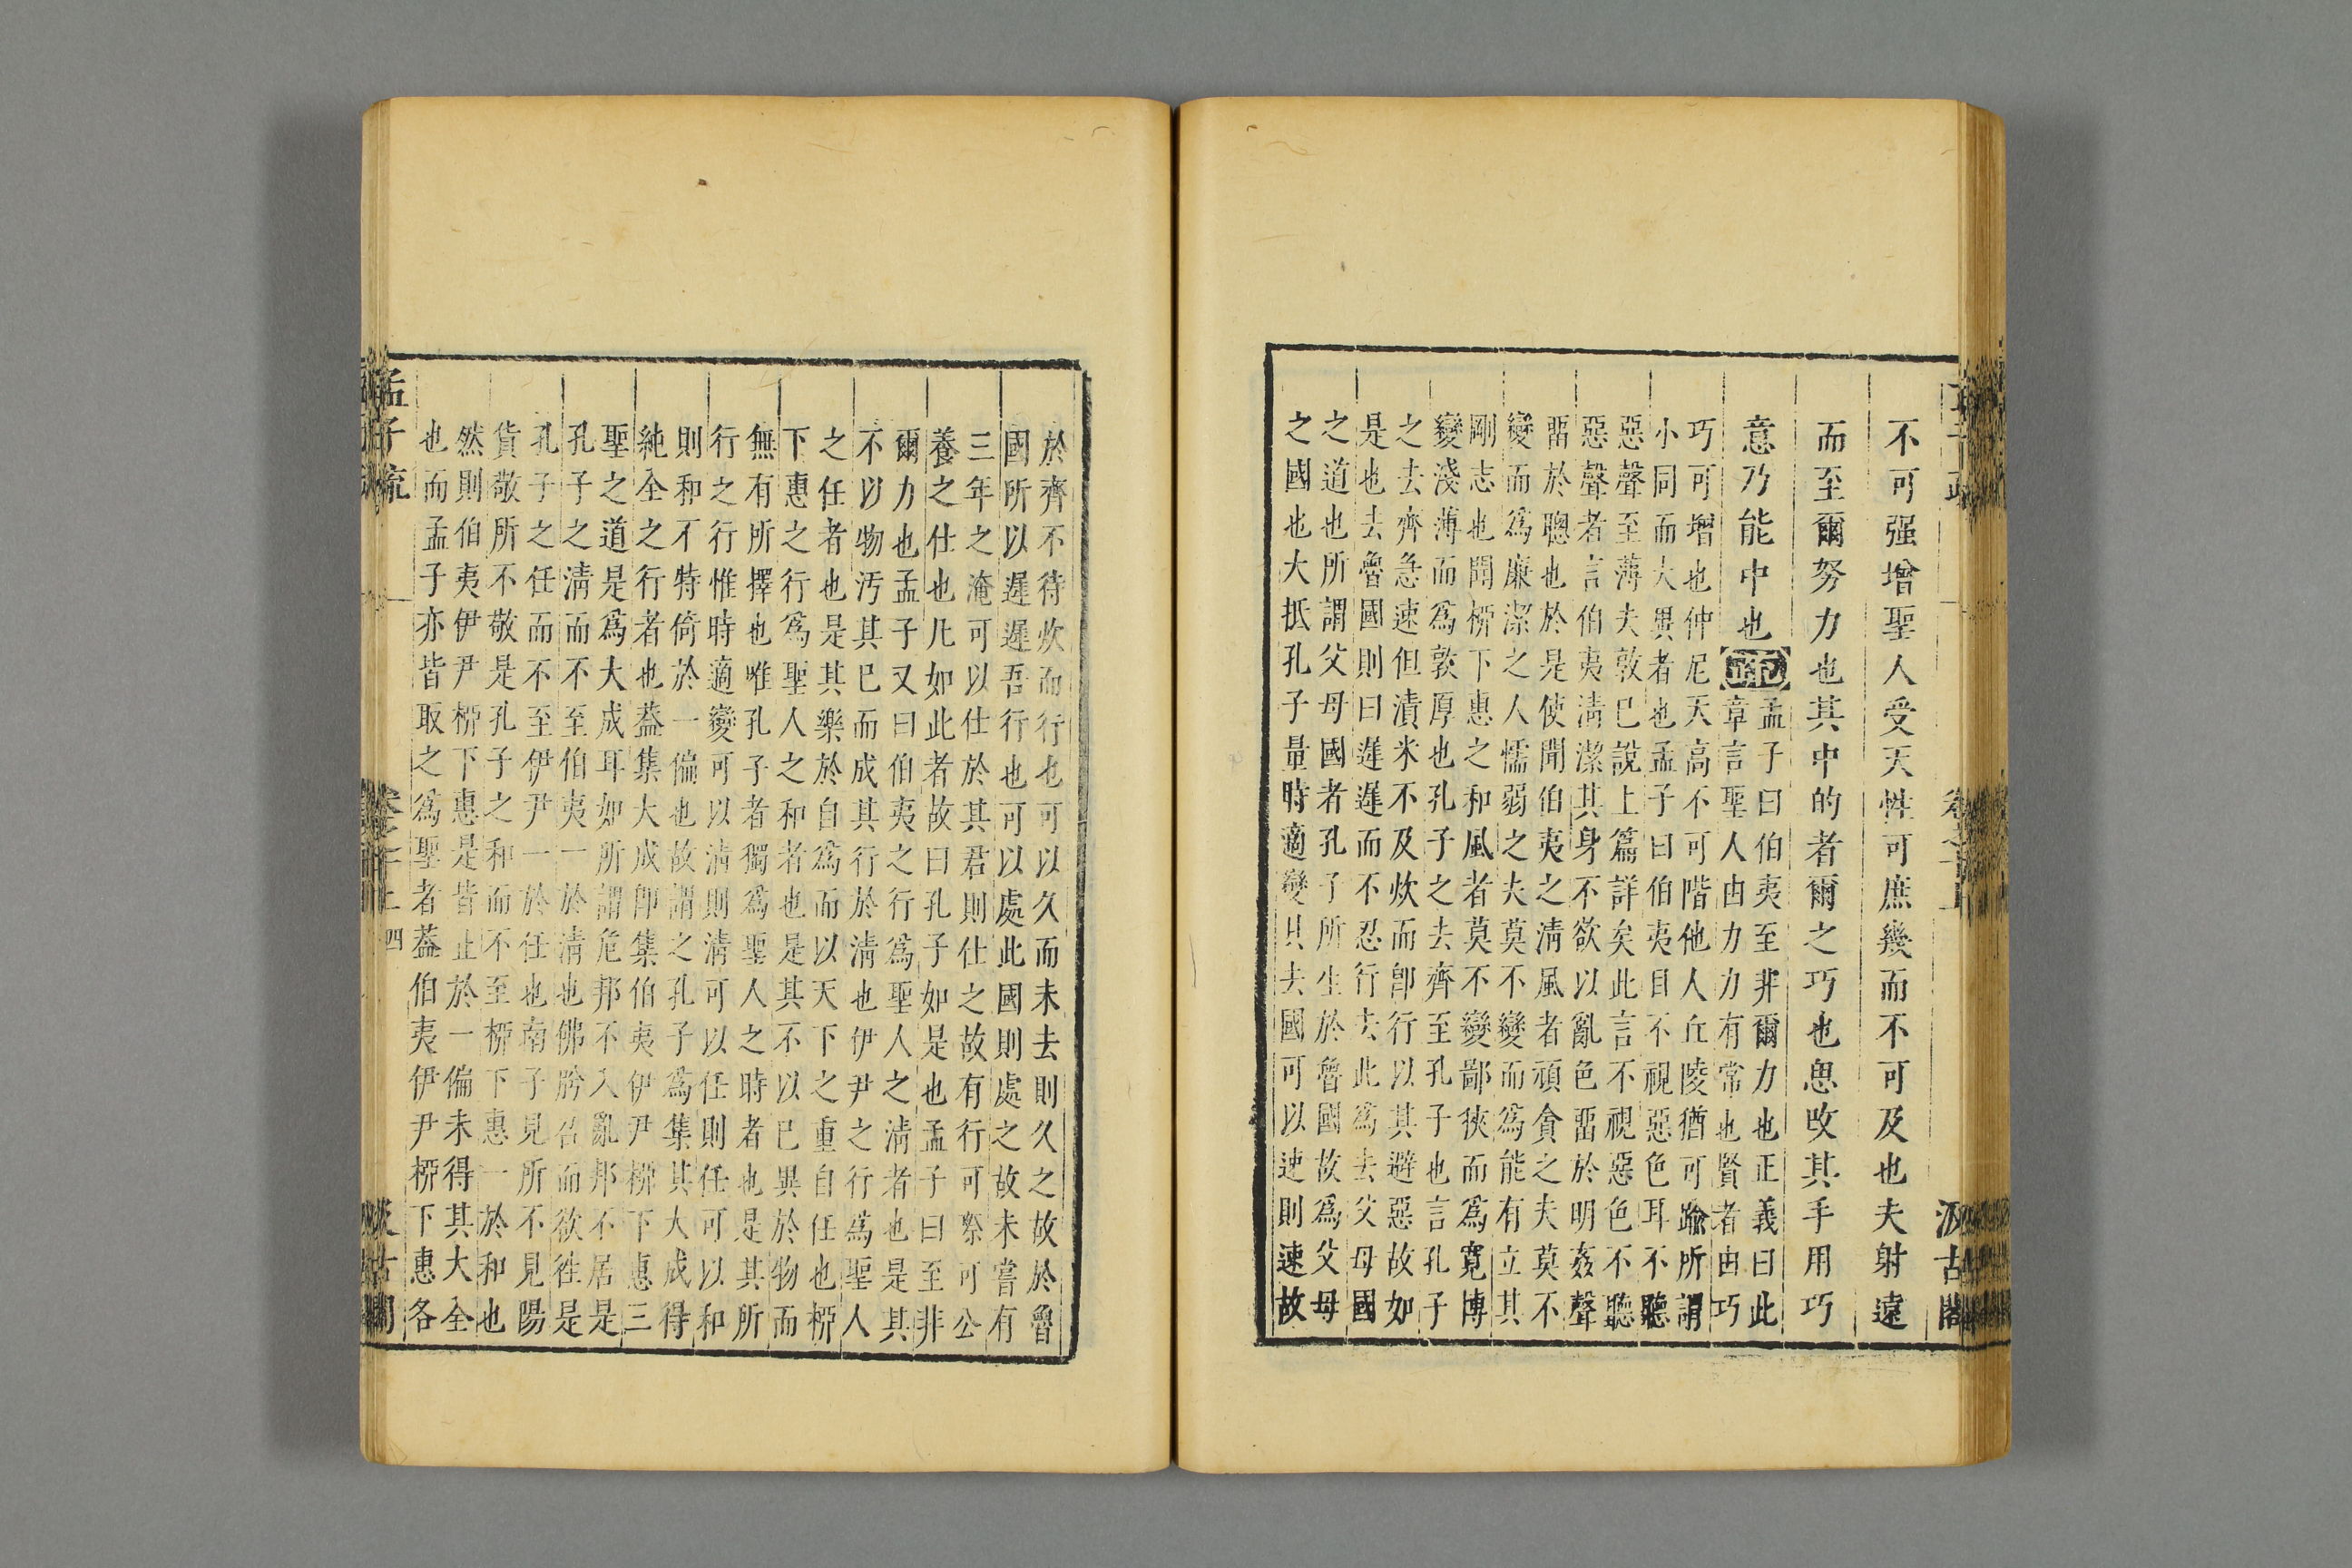 不可强增聖人受天性可庶幾而不可及也夫射遠
而至爾努力也其中的者爾之巧也思攺其手用巧
意乃能中也
正
孟子曰伯夷至非爾力也正義曰此
章言聖人由力力有常也賢者由巧
巧可增也仲尼天高不可階他人丘陵猶可踰所謂
小同而大異者也孟子曰伯夷目不視惡色耳不聽
惡聲至薄夫敦巳說上篇詳矣此言不視惡色不聽
惡聲者言伯夷淸潔其身不欲以亂色畱於明姦聲
畱於聰也於是使聞伯夷之淸風者頑貪之夫莫不
變而爲廉潔之人懦弱之夫莫不變而爲能有立其
剛志也聞栁下惠之和風者莫不變鄙狹而爲寛博
變淺薄而爲敦厚也孔子之去齊至孔子也言孔子
之去齊急速但漬米不及炊而卽行以其避惡故如
是也去魯國則曰遲遲而不忍行去此爲去父母國
之道也所謂父母國者孔子所生於魯國故爲父母
之國也大抵孔子量時適變其去國可以速則速故
於齊不待炊而行也可以久而未去則久之故於魯
國所以遲遲吾行也可以處此國則處之故未嘗有
三年之淹可以仕於其君則仕之故有行可祭可公
養之仕也凡如此者故曰孔子如是也孟子曰至非
爾力也孟子又曰伯夷之行爲聖人之淸者也是其
不以物汚其巳而成其行於淸也伊尹之行爲聖人
之任者也是其樂於自爲而以天下之重自任也栁
下惠之行爲聖人之和者也是其不以巳異於物而
無有所擇也唯孔子者獨爲聖人之時者也是其所
行之行惟時適變可以淸則淸可以任則任可以和
則和不特倚於一偏也故謂之孔子爲集其大成得
純全之行者也葢集大成卽集伯夷伊尹栁下惠三
聖之道是爲大成耳如所謂危邦不入亂邦不居是
孔子之淸而不至伯夷一於淸也佛肹召而欲徃是
孔子之任而不至伊尹一於任也南子見所不見陽
貨敬所不敬是孔子之和而不至栁下惠一於和也
然則伯夷伊尹栁下惠是皆止於一偏未得其大全
也而孟子亦皆取之爲聖者葢伯夷伊尹栁下惠各
孟子疏
四